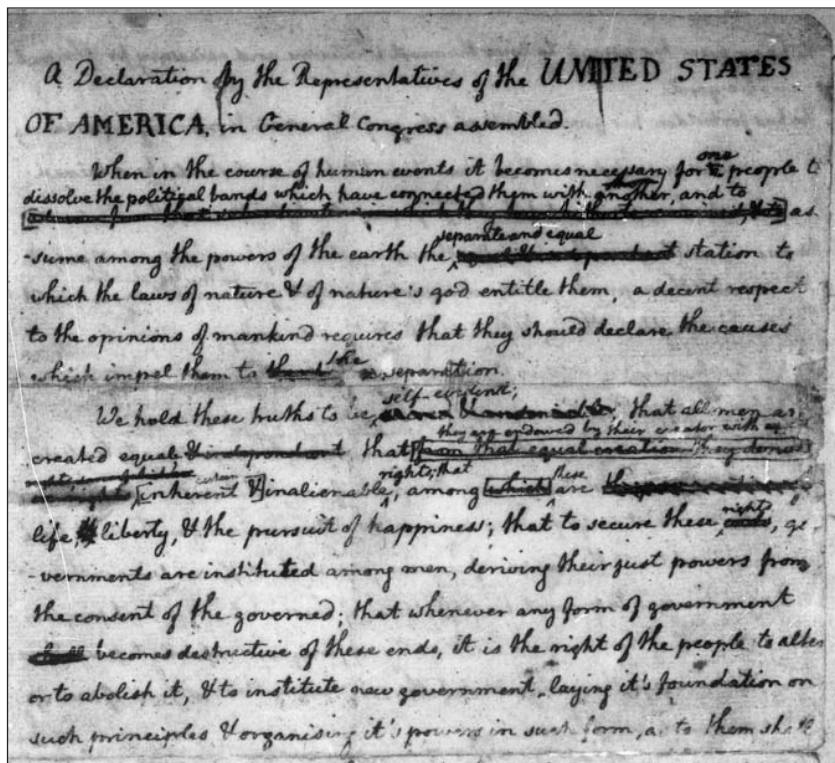 A Declaration by the Representatives of the UNITED STATES
OF AMERICA, in General Congress assembled.
When in the course of human events it becomes necessary for one people t
dissolve the political bands which have connected them with another, and to
as
separate and equal
-sume among the powers of the earth the station to
which the laws of nature & of nature's god entitle them, a decent respect
to the opinions of mankind requires that they should declare the causes
which impel them to the separation.
self-evident;
We hold these truths to be that all men are
they are endowed by their creator with
created equal & independent that from that equal creation they derive
rights; that these
[inherent &] inalienable, among which are
life, liberty, & the pursuit of happiness; that to secure these rights, go
-vernments are instituted among men, deriving their just powers from
the consent of the governed; that whenever any form of government
becomes destructive of these ends, it is the right of the people to alter
or to abolish it, & to institute new government, laying it's foundation on
such principles & organising it's powers in such form, as to them sh